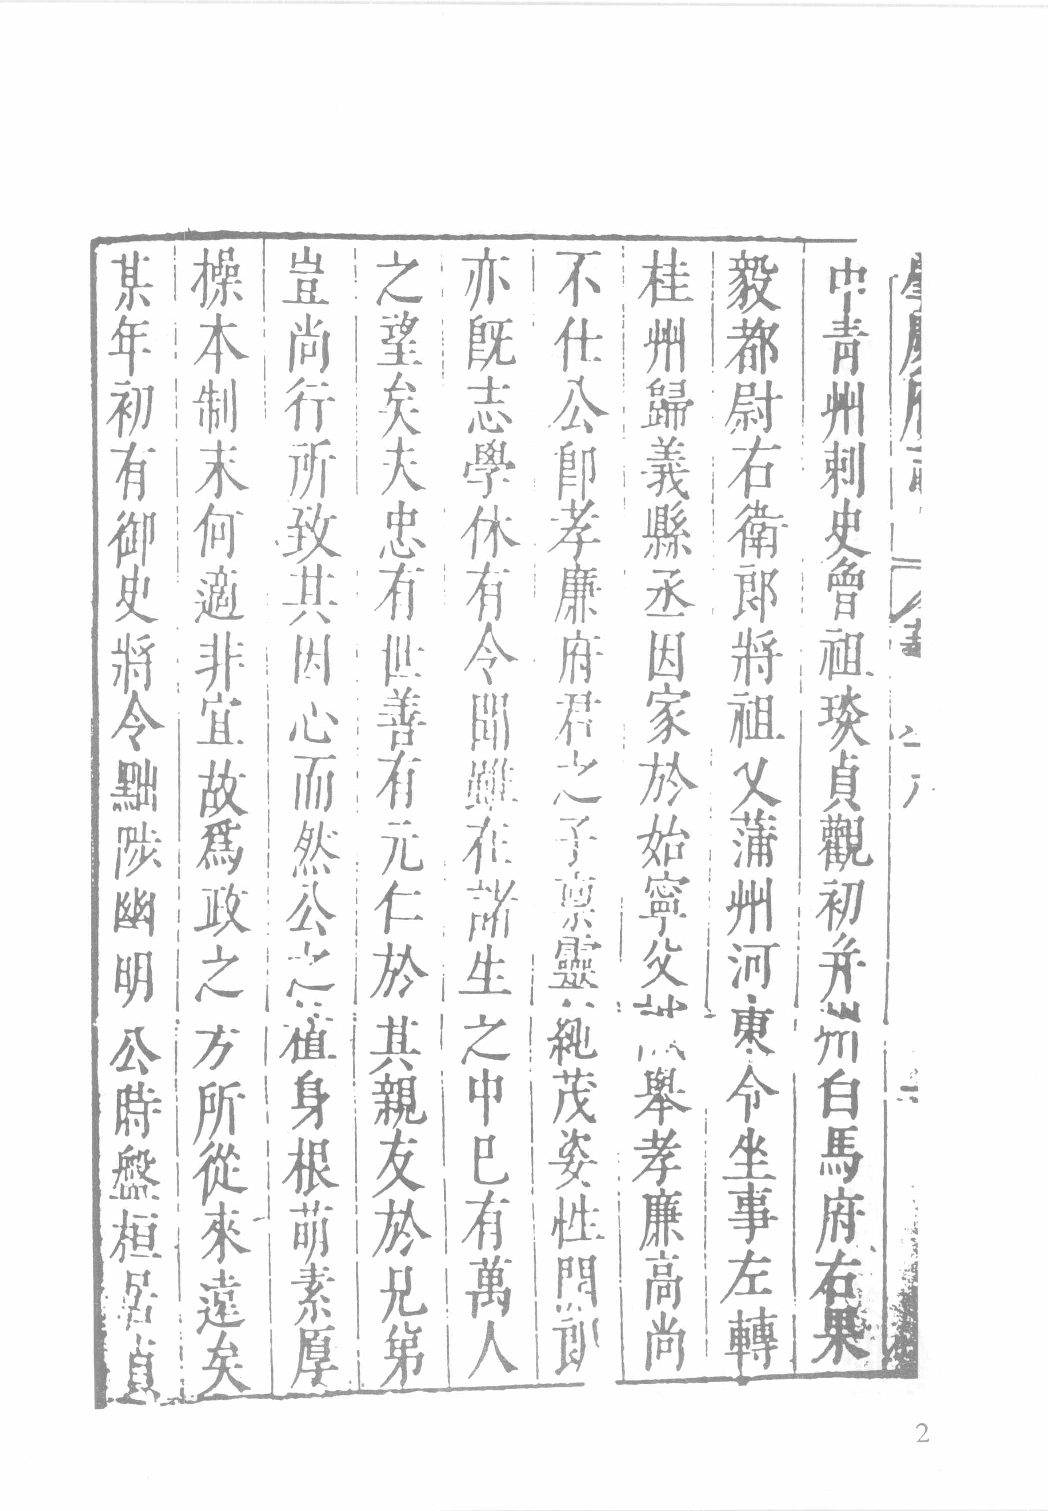 中青州刺史曾祖琰貞觀初并州白馬府右果
毅都尉右衛郎將祖乂蒲州河東令坐事左轉
桂州歸義縣丞因家於始寧父 舉孝廉高尚
不仕公卽孝廉府君之子稟靈純茂姿性閒
亦旣志學休有令聞雖在諸生之中已有萬人
之望矣夫忠有世善有元仁於其親友於兄弟
豈尚行所致其因心而然公之植身根萌素厚
操本制末何適非宜故爲政之方所從來遠矣
某年初有御史將令黜陟幽明公時盤桓居貞
2